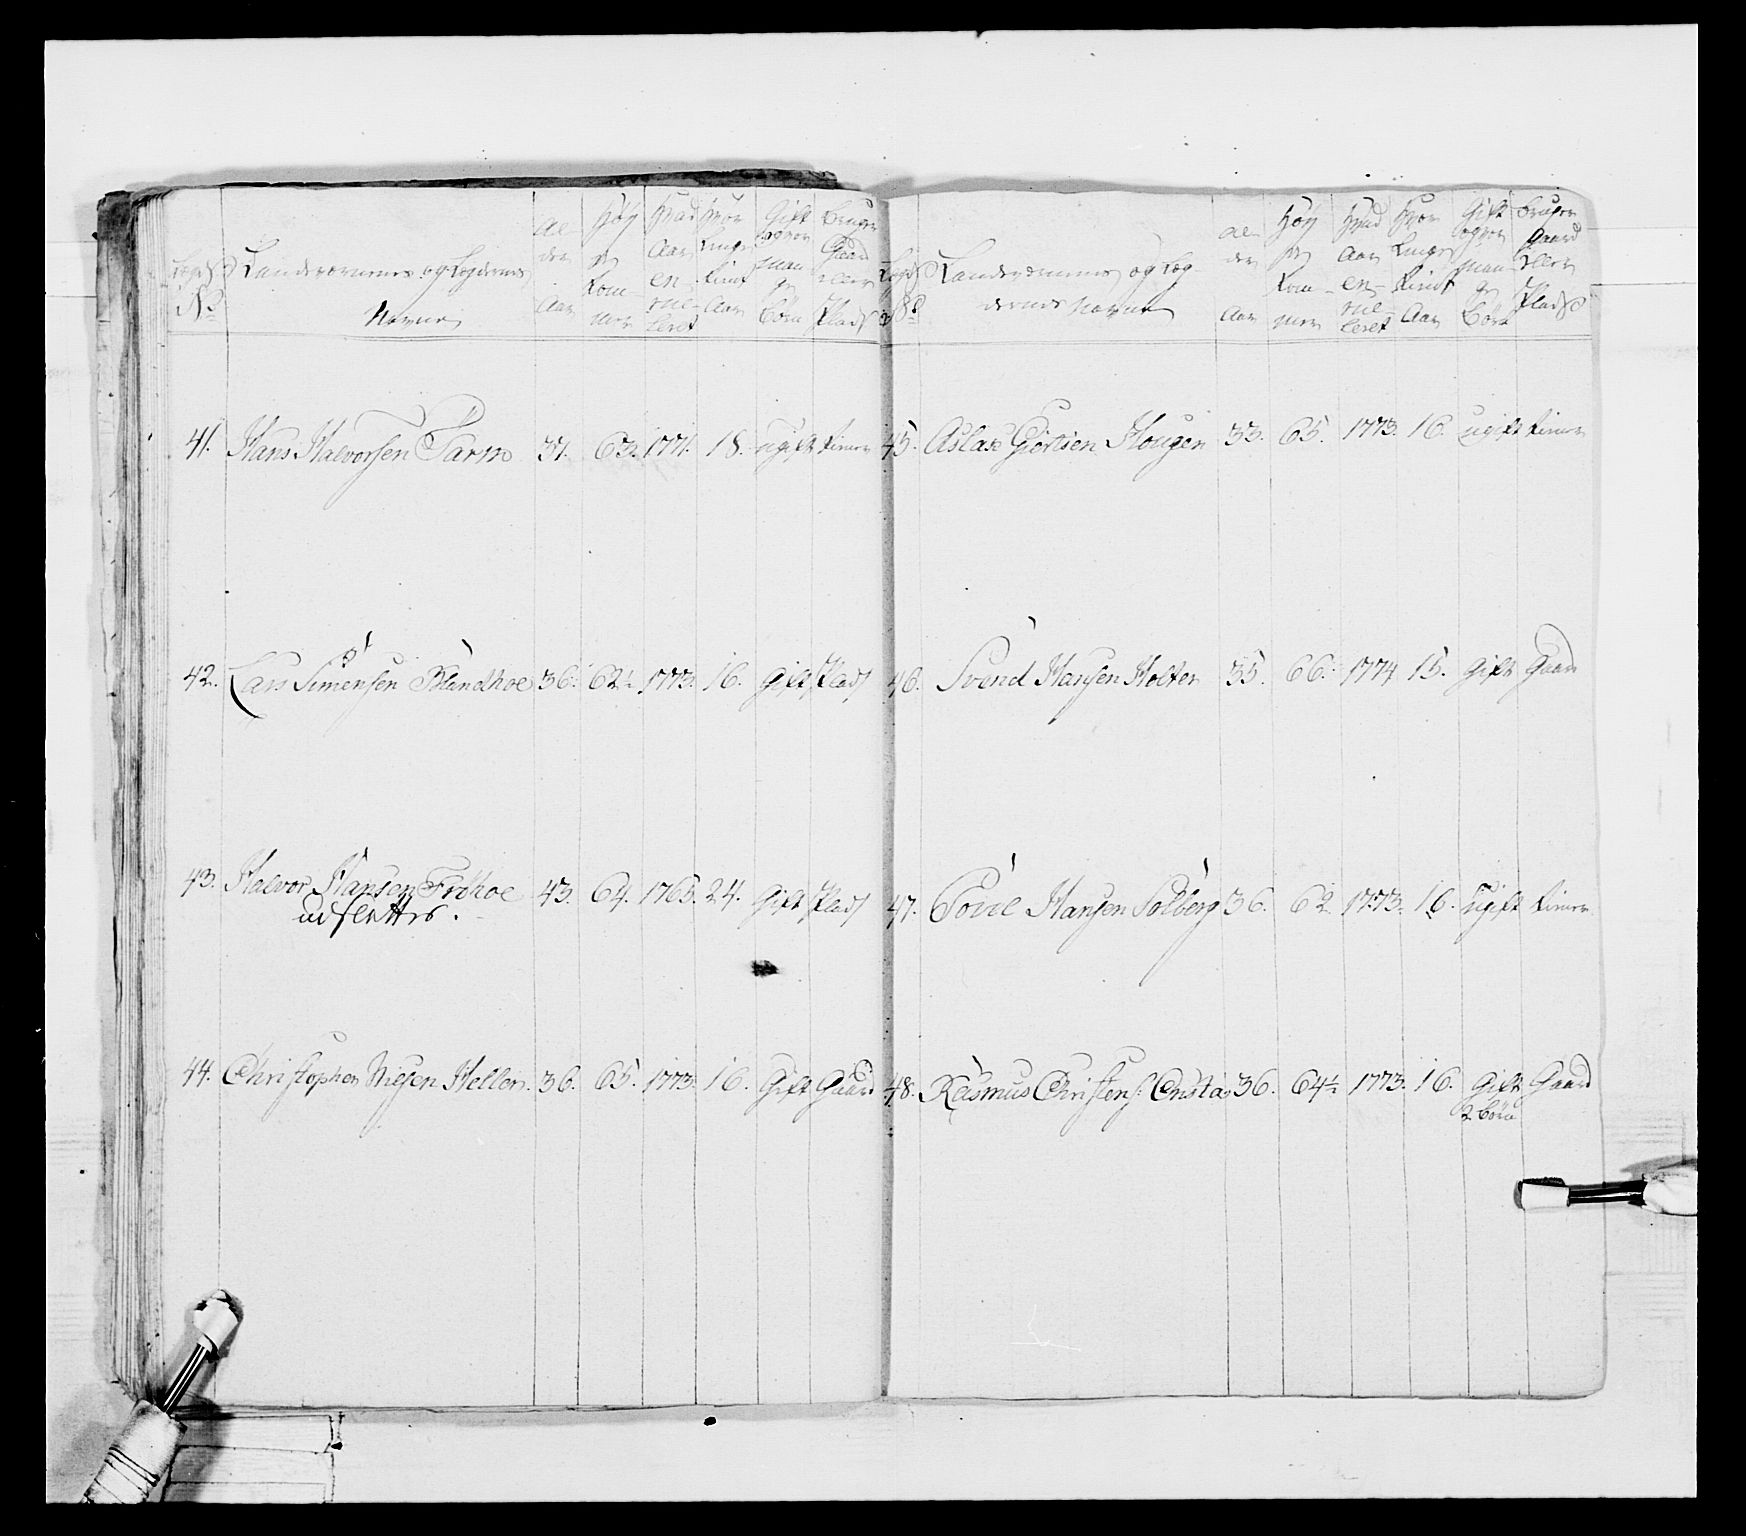 Lægds No
Landeværnernes og Lægdernes
Navne
Al-
der
Aar
Høy
de
Tom-
mer
Hvad
Aar
en-
rul-
leret
Hvor
længe
tient
Aar
Gift
og hvor
man-
ge
Børn
Bruger
Gaard
eller
Plads
41. Hans Halvorsen Tarm 37. 63. 1771. 18. ugift tiener
42. Lars Simensen Blindhoe 36. 62½ 1773. 16. Gift Plads
43. Halvor Hansen Frøhoe 43. 64. 1765. 24. Gift Plads
udslettes.
44. Christopher Nielsen Hellen 36. 65. 1773. 16. Gift Gaard
Lægds No
Landeværnernes og Læg
dernes Navne
Al-
der
Aar
Høy
de
Tom-
mer
Hvad
Aar
en-
rul-
leret
Hvor
længe
tient
Aar
Gift
og hvor
man-
ge
Børn
Bruger
Gaard
eller
Plads
45. Aslak Hougen 33. 65. 1773. 16. ugift tiener
46. Svend Hansen Holter 35. 66. 1774 15. Gift Gaard
47. Povel Hansen Solberg 36. 62 1773. 16. Ugift tiener
48. Rasmus Christens. Onsta 36. 64½ 1773. 16. Gift Gaard
2 børn